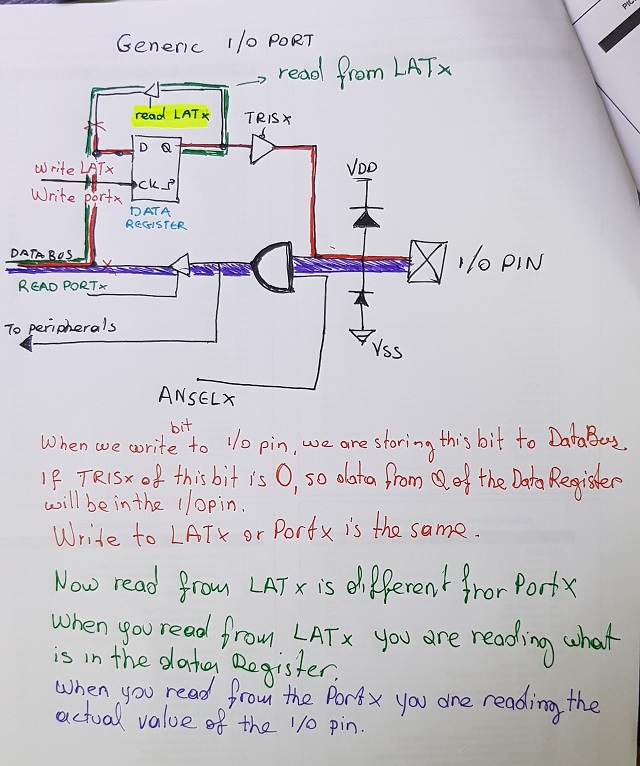 Generic I/O PORT
read from LATx
read LATx
TRISx
D Q
Write LATx
Write portx
CK
DATA
REGISTER
VDD
DATA BUS
I/O PIN
READ PORTx
To peripherals
VSS
ANSELX
When we write bit to I/O pin, we are storing this bit to DataBus
If TRISx of this bit is 0, so data from Q of the Data Register
will be in the I/O pin.
Write to LATx or Portx is the same.
Now read from LATx is different fror PortX
When you read from LATx you are reading what
is in the data Register.
When you read from the Portx you are reading the
actual value of the I/O pin.